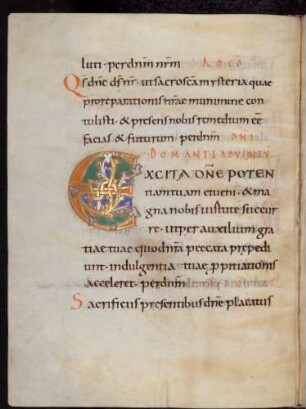 luti · perdnm nrm AD CO
Qs dne ds nr · ut sacrosca mysteria quae
pro reparationis nrae munimine con
tulisti · & presens nobis remedium ee
facias & futurum · perdnm DNI
DOM ANTE ADVENTU
EXCITA DNE POTEN
tiam tuam et ueni · & ma
gna nobis uirtute succur
re · ut per auxilium gra
tiae tuae quod nra peccata prepedi
unt · indulgentia tuae ppitiationis
acceleret · perdnm
Sacrificiis presentibus dne placatus